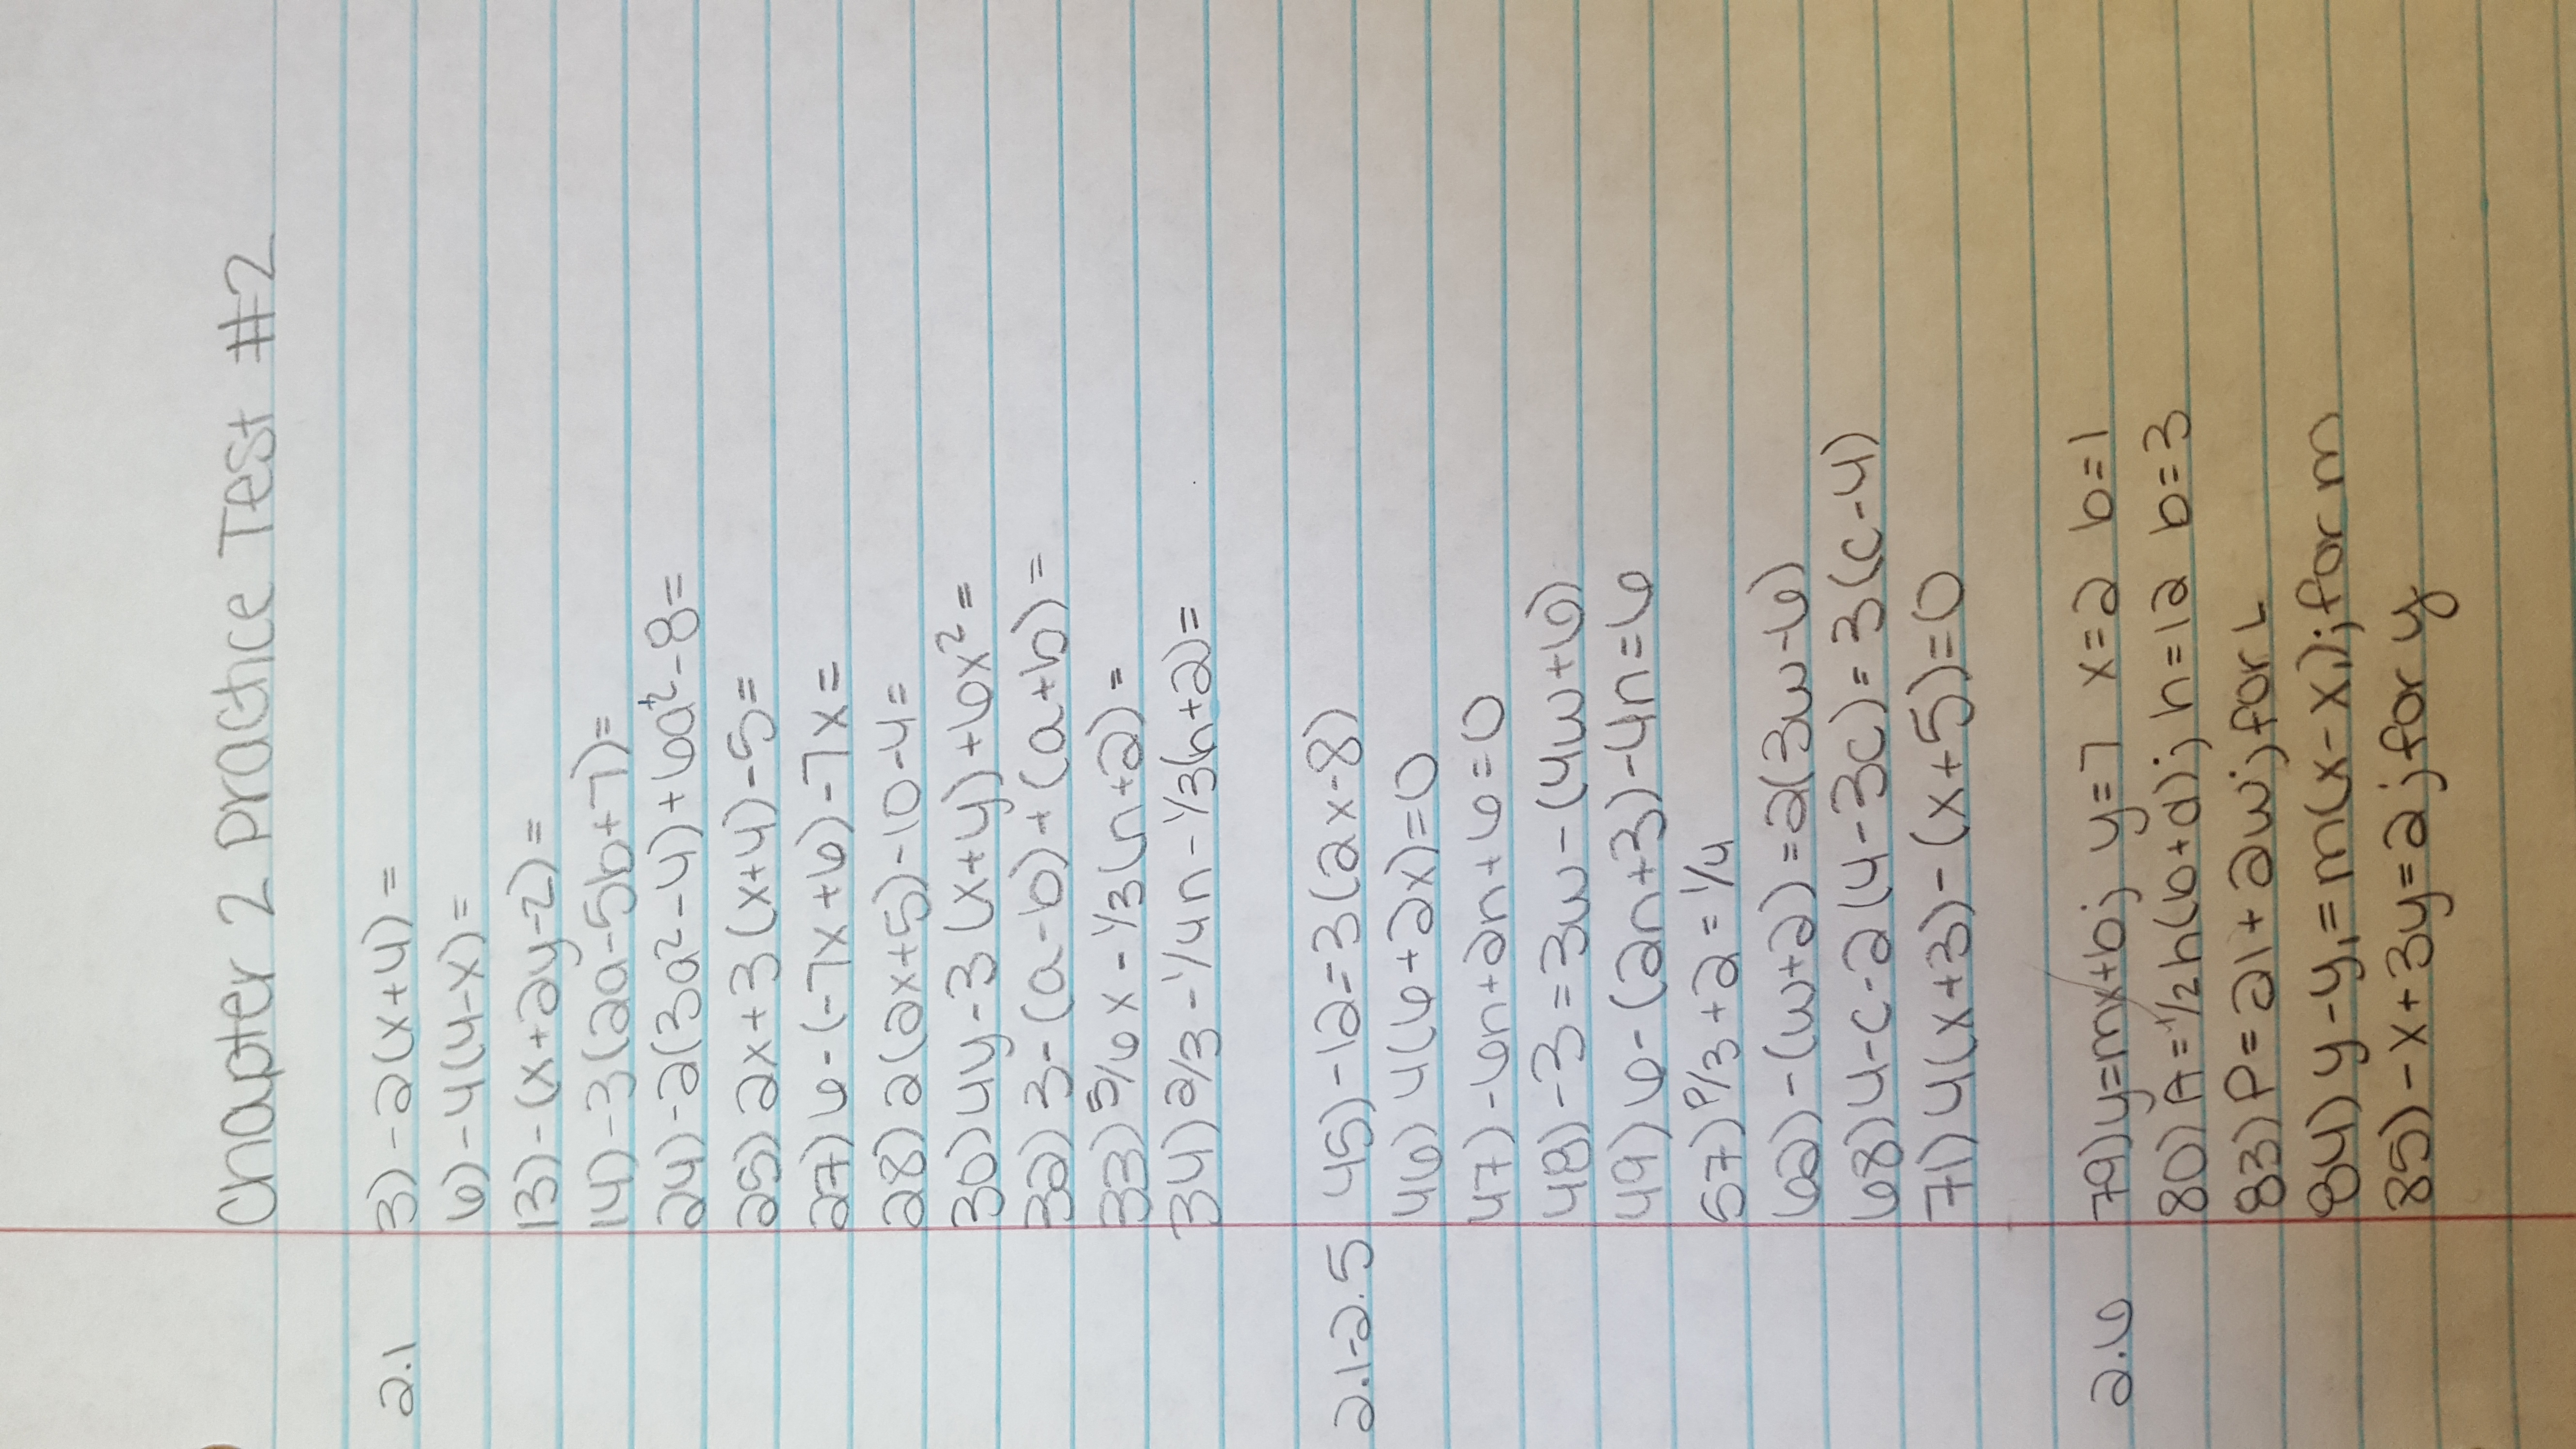 Chapter 2 Practice Test #2
2.1 3) -2(x+4)=
6) -4(4-x)=
13) -(x+2y-2)=
14) -3(2a-5b+7)=
24) -2(3a²-4)+6a²-8=
25) 2x+3(x+4)-5=
27) 6-(-7x+6)-7x=
28) 2(2x+5)-10-4=
30) 4y-3(x+y)+6x²=
32) 3-(a-b)+(a+b)=
33) 5/6x-1/3(n+2)=
34) 2/3-1/4n-1/3(n+2)=
2.1-2.5 45) -12=3(2x-8)
46) 4(6+2x)=0
47) -6n+2n+6=0
48) -3=3w-(4w+6)
49) 6-(2n+3)-4n=6
57) P/3+2=1/4
62) -(w+2)=2(3w-6)
68) 4-c-2(4-3c)=3(c-4)
71) 4(x+3)-(x+5)=0
2.6 79) y=mx+b; y=7 x=2 b=1
80) A=1/2h(b+d); h=12 b=3
83) P=2l+2w; for L
84) y-y₁=m(x-x₁); for m
85) -x+3y=2; for y